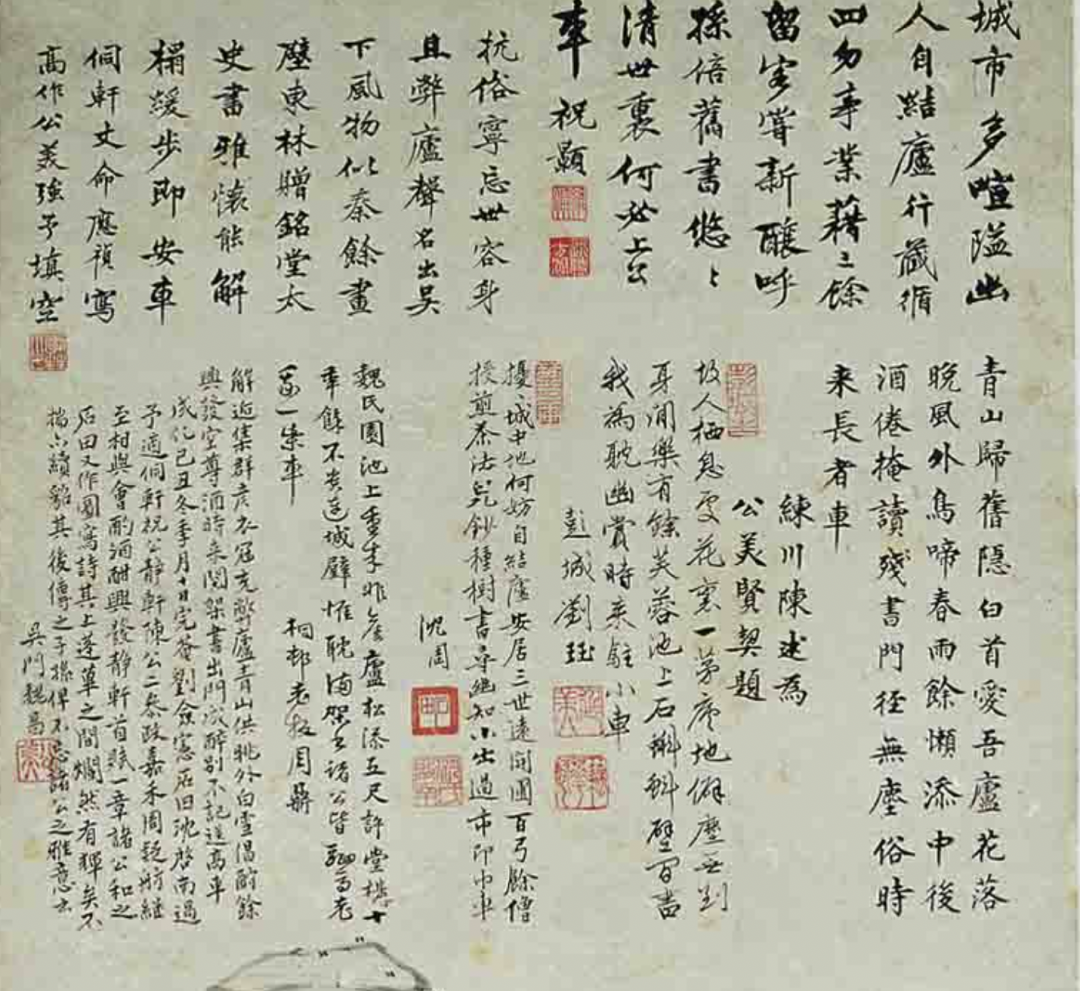 城市多喧隘幽
人自結廬行藏循
四勿事業藉三餘
留客嘗新釀呼
孫倍舊書悠〻
清世裏何必上公
車 祝顥
抗俗寧忘世容身
且弊廬聲名出吳
下風物似秦餘畫
壁東林贈銘堂太
史書雅懷能解
榻緩步即安車
侗軒丈命應禎寫
高作公美強予填空
青山歸舊隱白首愛吾廬花落
晚風外鳥啼春雨餘懶添中後
酒倦掩讀殘書門徑無塵俗時
来長者車
練川陳述為
公美賢契題
人栖息處花裏一茅廬地僻塵無到
身閒樂有餘芙蓉池上石蝌蚪壁間書
我為耽幽賞時来駐小車
彭城劉珏
擾〻城中地何妨自結廬安居三世遠開圃百弓餘僧
授煎茶法兒鈔種樹書尋幽知小出過市印巾車
沈周
魏氏園池上重来非舊廬松添五尺許堂構十
年餘不羨連城璧惟耽滿架書諸公皆駟馬老
我一柴車
桐邨老牧周鼎
解近集群彦衣冠充弊廬青山供眺外白雪倡酬餘
興發空尊酒時来閱架書出門成醉別不記送高車
成化己丑冬季月十日完菴劉僉憲石田沈啓南過
予適侗軒祝公靜軒陳公二參政嘉禾周疑舫繼
至相與會酌酒酣興發靜軒首賦一章諸公和之
石田又作圖寫詩其上蓬蓽之間爛然有輝矣不
揣亦續貂其後傳之子孫俾不忘諸公之雅意云
吳門魏昌